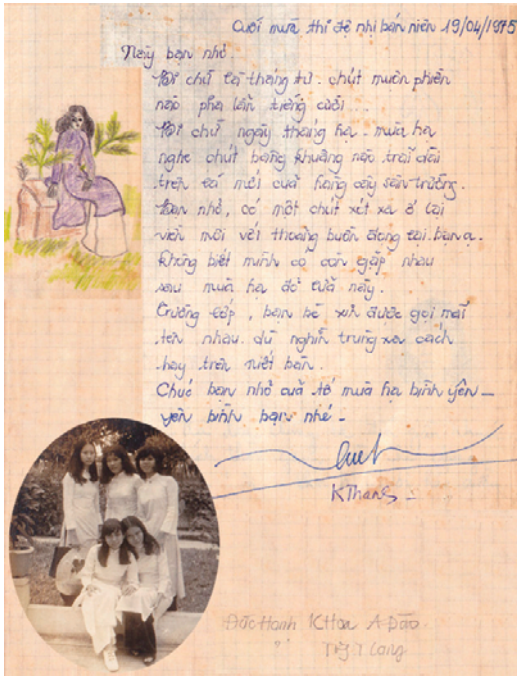 Cuối mùa thi đệ nhị bán niên 19/04/1975
Này bạn nhỏ.
tháng tư. chút muộn phiền
nào pha lẫn tiếng cười...
ngày tháng hạ. mùa hạ
nghe chút bâng khuâng nào trải dài
trên lá mới của hàng cây sân trường.
Bạn nhỏ, có một chút xót xa ở lại
với thoáng buồn đọng lại. bạn ạ.
Không biết mình có còn gặp nhau
sau mùa hạ đỏ lửa này.
Trường lớp, bạn bè xin được gọi mãi
tên nhau. dù nghìn trùng xa cách
hay trên niết bàn.
Chúc bạn nhỏ của tớ mùa hạ bình yên -
yên bình bạn nhé -
KThang -
Đức Hạnh KHoa A. Đào